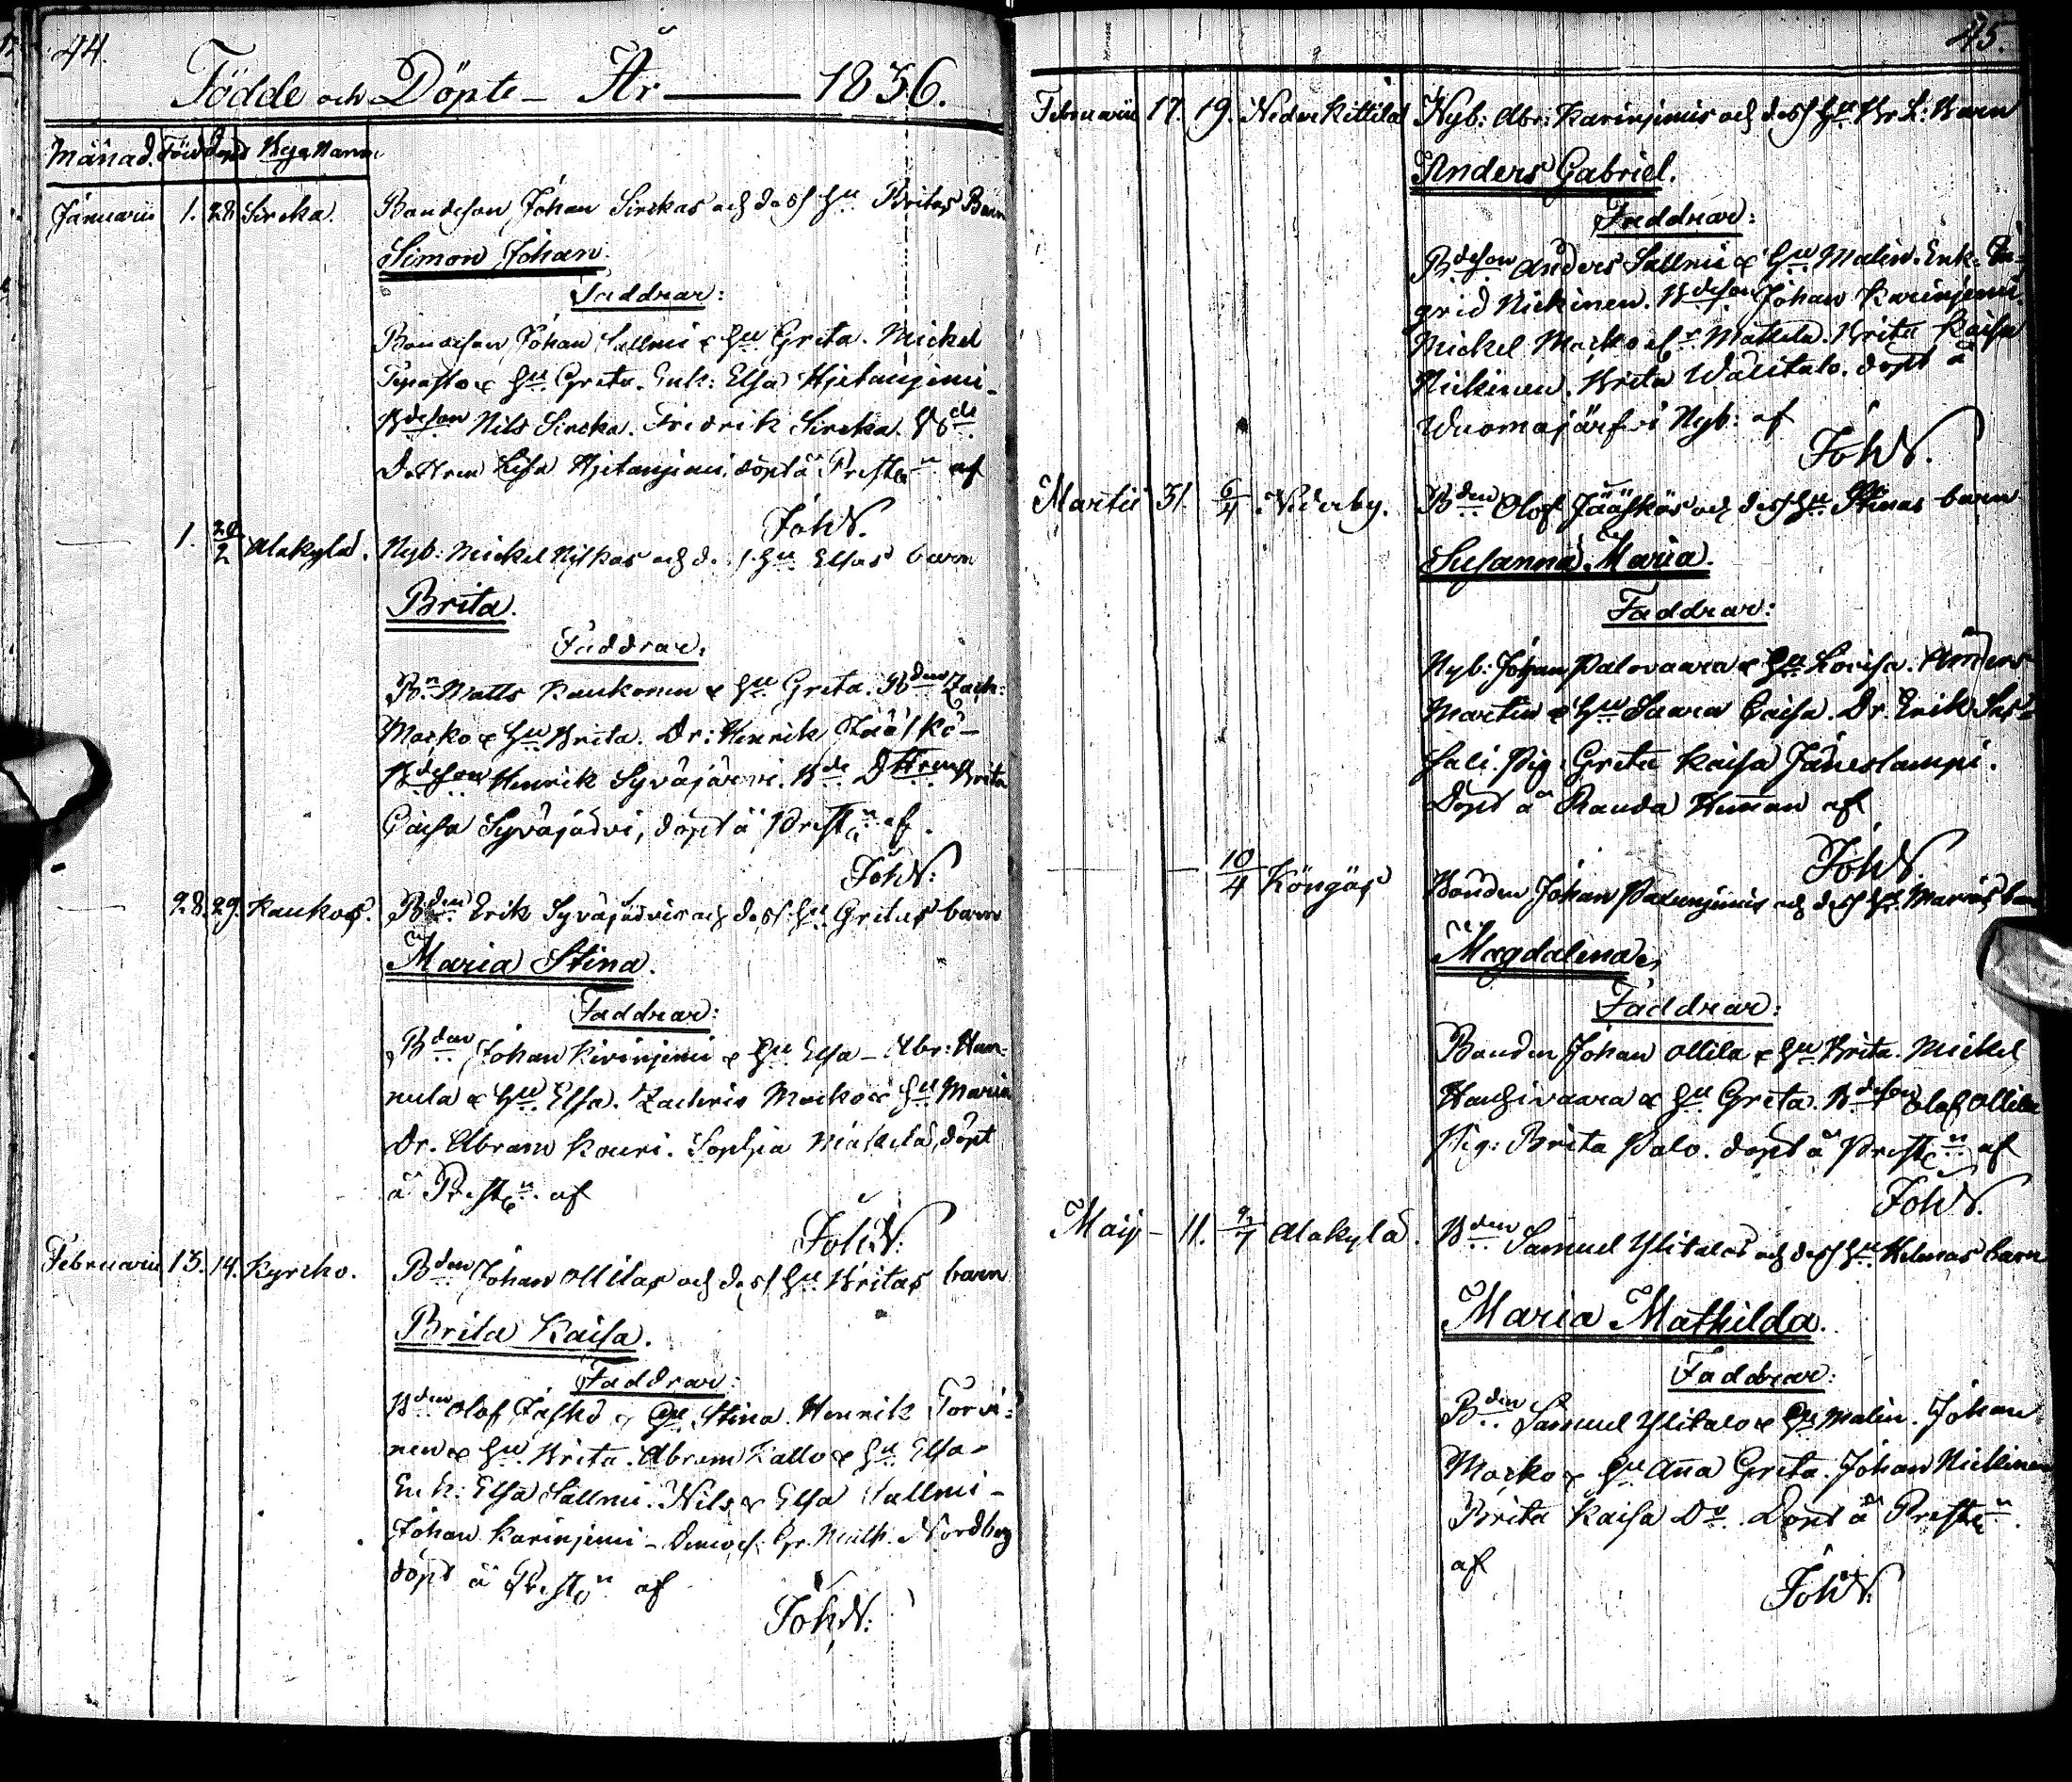 44.
Födde och Döpte – År —— 1836.
Månad. Född Döpt Bya Namn
Januarii 1. 28. Sircka. Bondeson Johan Sirckas och dess hu Britas Barn
Simon Johan.
Faddrar:
Bondeson Johan Sallmi & hu Greta. Mickel
& hu Greta. Enk: Elsa Hjetanjemi –
Bdeson Nils Sircka. Fridrik Sircka. Bde
Dottren Lisa Hjetanjemi, döpt å Prestn af
JohN.
1. 20/2 Alakylä. Nyb: Mickel och dess hu Elsas barn
Brita.
Faddrar.
Bn Matts Kaukonen & hu Greta. Bden Zach:
Mocko & hu Brita. Dr: Henrik Jääskö –
Bdeson Henrik Syväjärvi. Bde Dttren Brita
Caisa Syväjärvi, döpt å Prestn af.
JohN:
28. 29. Kaukos. Bden Erik Syväjärvis och dess hu Gretas barn
Maria Stina.
Faddrar:
Bden Johan Kirinjemi & hu Elsa – Abr: Han-
nula & hu Elsa. Zachris Mocko & hu Maria
Dr. Abram Kouri. Sophia Mattila, döpt
å Prestn af
JohN:
Februarii 13. 14. Kyrcko. Bden Johan Ollilas och dess hu Britas barn
Brita Kaisa.
Faddrar:
Bden Olof Jäskö & hu Stina. Henrik Torvi-
nen & hu Brita. Abram Kallo & hu Elsa –
Enk: Elsa Sallmi. Nils & Elsa Sallmi –
Johan Karinjemi – Nordberg
döpt å Prestn af
JohN:
45.
Februarii 17. 19. Neder Kittilä Nyb: Abr: Karinjemis och dess hu Br. L: Barn
Anders Gabriel.
Faddrar:
Bdeson Anders Sallmi & hu Malin. Enk. In-
grid Nickinen. Bdeson Johan Karinjemi.
Mickel Mocko Mattila. Brita Kaisa
Nickinen. Brita Wälitalo. döpt å
Wuomajärfvi Nyb: af
JohN.
Martii 31. 6/4 Nederby. Bden Olof Jääskös och dess hu Stinas barn
Susanna Maria.
Faddrar:
Nyb: Johan Palovaara & hu Lovisa. Anders
Martin & hu Saara Caisa. Dr. Erik
Pig. Greta Kaisa Jäneslampi.
Döpt å Rauda Hemman af
JohN.
10/4 Köngäs Bonden Johan och dess hu Marias barn
Magdalena.
Faddrar:
Bonden Johan Ollila & hu Brita. Mickel
Hauhivaara & hu Greta. Bdeson Olof Ollila
Pig: Brita Palo. döpt å Prestn af
JohN.
Maij – 11. Alakylä. Bden Samuel Ylitalos och dess hu Helenas barn
Maria Mathilda.
Faddrar:
Bden Samuel Ylitalo & hu Malin. Johan
Mocko & hu Anna Greta. Johan Nickinen
Brita Kaisa Do. Döpt å Prestn
af
JohN.